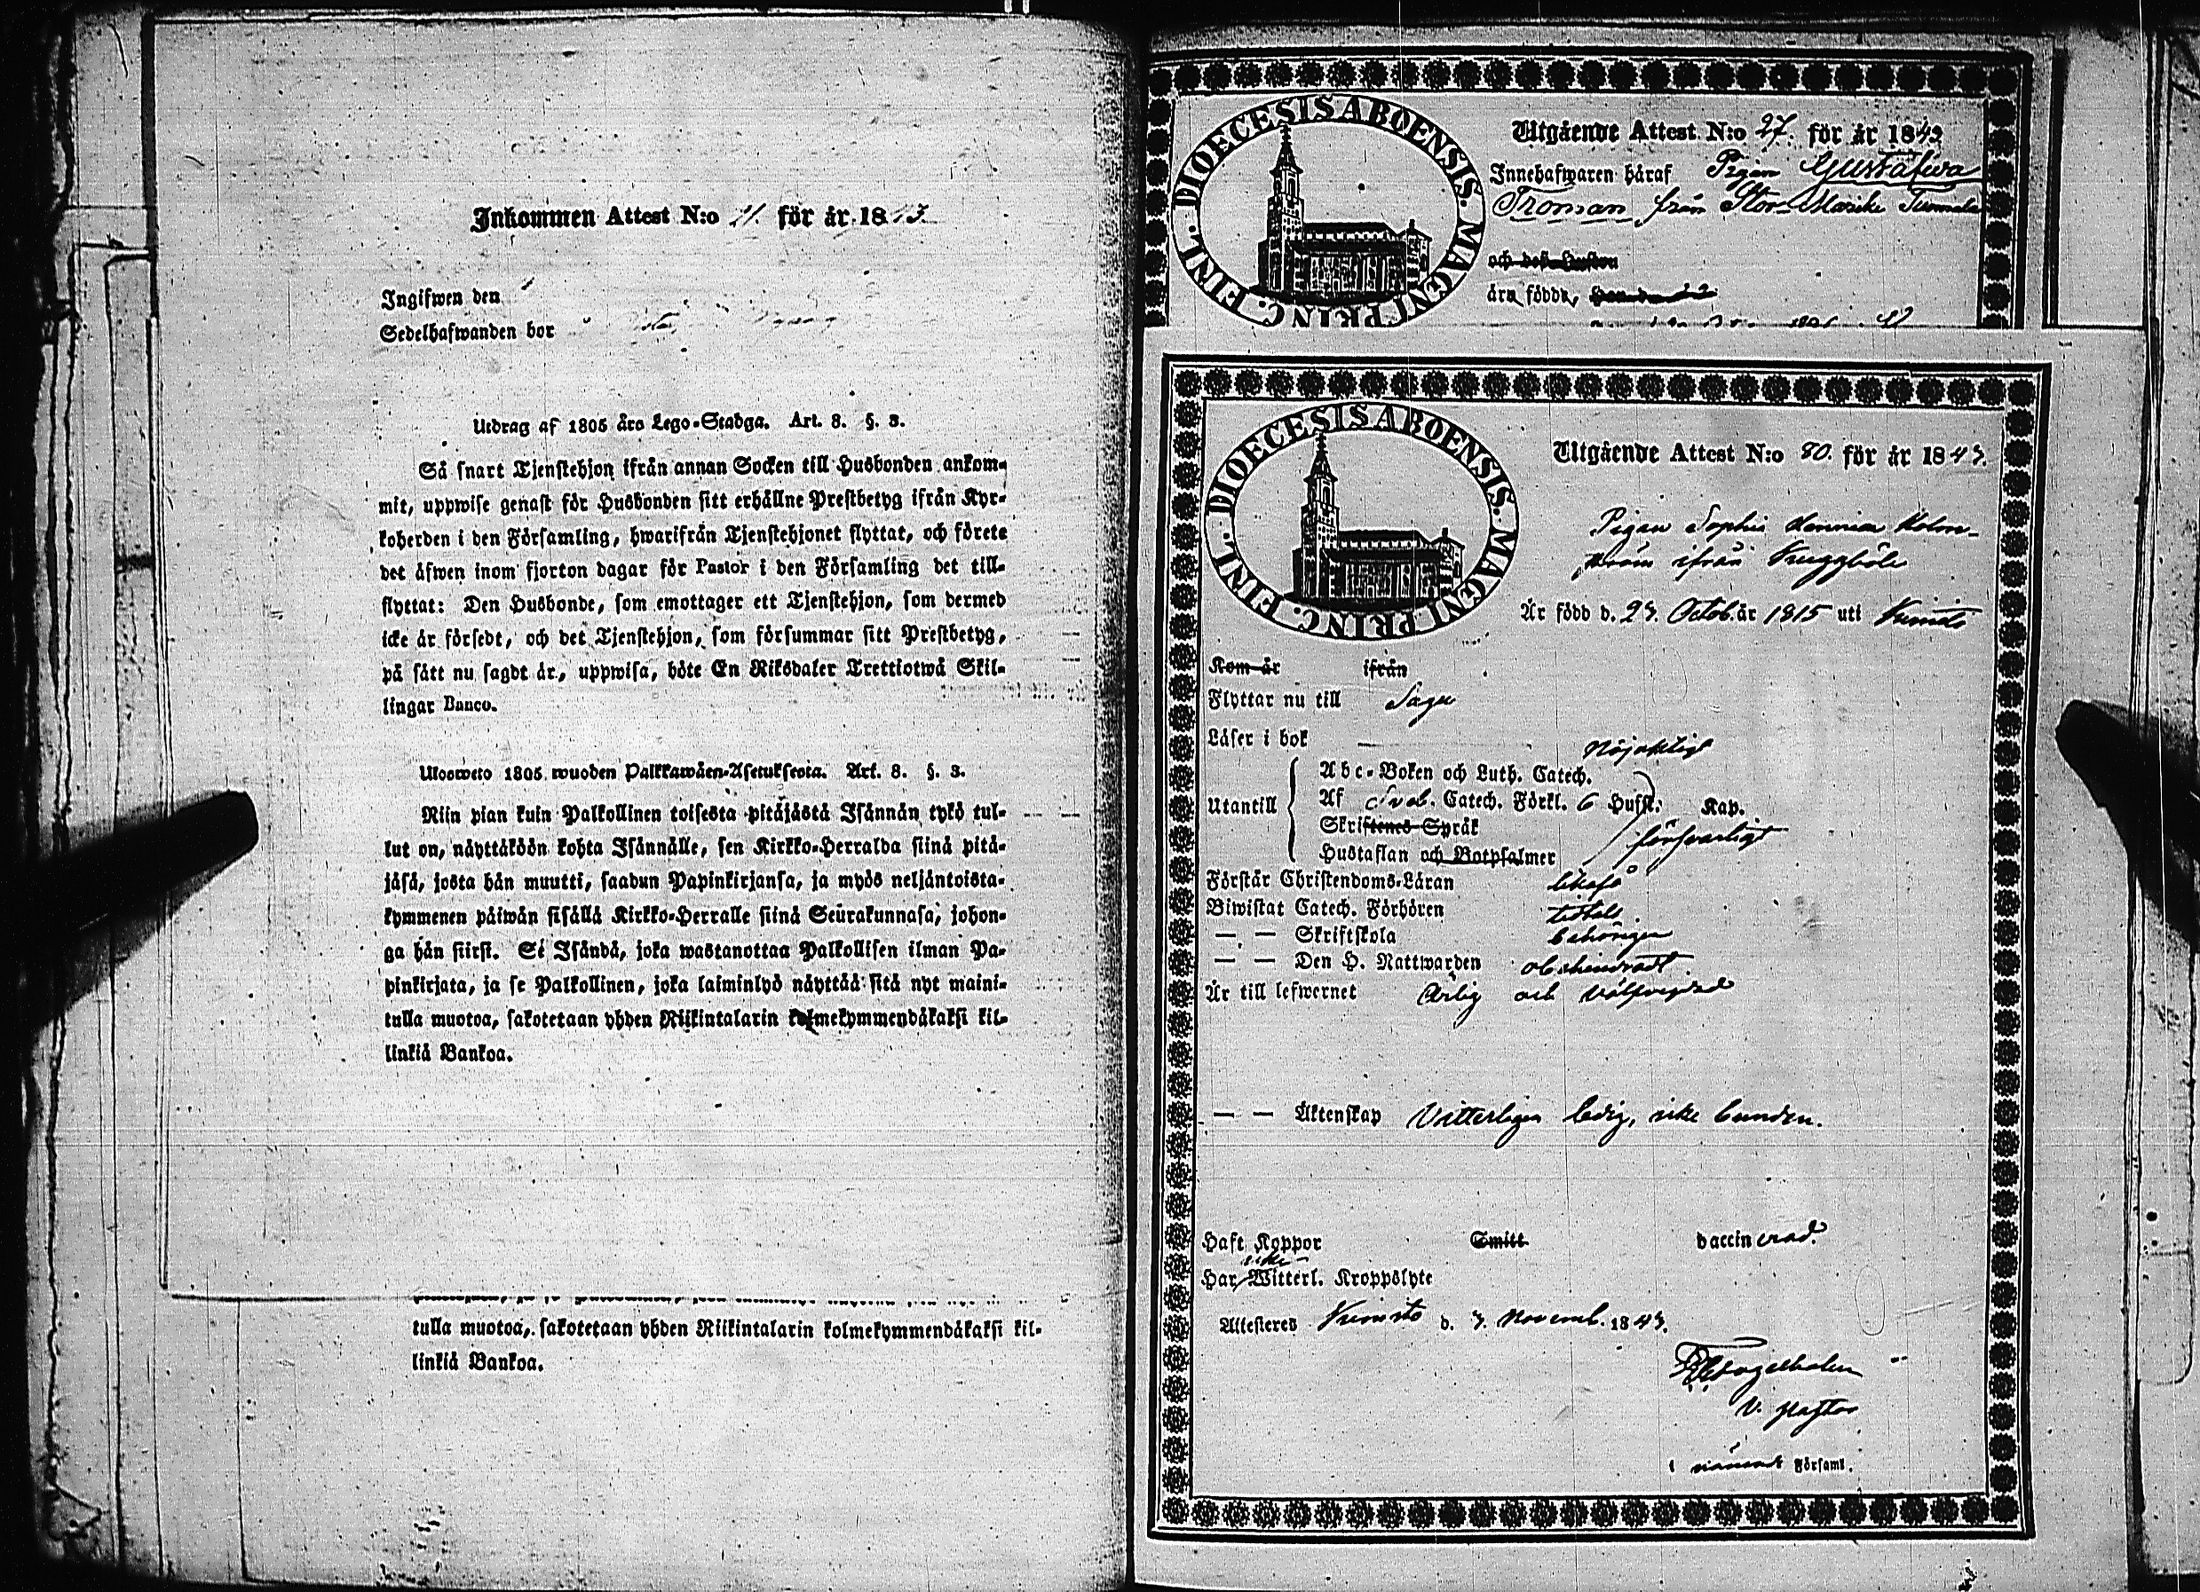 Inkommen Attest N:o 21. för år 1843.
Ingifwen den
Sedelhafwanden bor
Utdrag af 1805 års Lego-Stadga. Art. 8. §. 3.
Så snart Tjenstehjon ifrån annan Socken till Husbonden ankom-
mit, uppwise genast för Husbonden sitt erhållne Prestbetyg ifrån Kyr-
koherden i den Församling, hwarifrån Tjenstehjonet flyttat, och förete
det äfwen inom fjorton dagar för Pastor i den Församling det till-
flyttat: Den Husbonde, som emottager ett Tjenstehjon, som dermed
icke är försedt, och det Tjenstehjon, som försummar sitt Prestbetyg,
på sätt nu sagdt är, uppwisa, böte En Riksdaler Trettiotwå Skil-
lingar Banco.
Ulosweto 1805. wuoden Palkkawäen-Asetuksesta. Art. 8. §. 3.
Niin pian kuin Palkollinen toisesta pitäjästä Isännän tykö tul-
lut on, näyttäköön kohta Isännälle, sen Kirkko-Herralda siinä pitä-
jäsä, josta hän muutti, saadun Papinkirjansa, ja myös neljäntoista-
kymmenen päiwän sisällä Kirkko-Herralle siinä Seurakunnasa, johon-
ga hän siirsi. Se Isändä, joka wastanottaa Palkollisen ilman Pa-
pinkirjata, ja se Palkollinen, joka laiminlyö näyttää sitä nyt maini-
tulla muotoa, sakotetaan yhden Riikintalarin kolmekymmendäkaksi kil-
linkiä Bankoa.
tulla muotoa, sakotetaan yhden Riikintalarin kolmekymmendäkaksi kil-
linkiä Bankoa.
DIOECESIS ABOENSIS. MAGNI PRINC. FINL.
Utgående Attest N:o 27. för år 1843
Innehafwaren häraf Pigan Gustafwa
Troman från Stor-
och dess Hustru
äro födde,
DIOECESIS ABOENSIS. MAGNI PRINC. FINL.
Utgående Attest N:o 80. för år 1843.
Pigan Sophia Henrica Holm-
ström ifrån Skinnböle
Är född d. 23. Octob. år 1815 uti Kimito
Kom år ifrån
Flyttar nu till Sagu
Läser i bok nöjaktigt
Utantill
Abc-Boken och Luth. Catech.
Af Sveb. Catech. Förkl. 6 Hufst. Kap.
Skriftenes Språk
Hustaflan och Botpsalmer försvarligt
Förstår Christendoms-Läran likaså
Biwistat Catech. Förhören
— — Skriftskola behörigen
— — Den H. Nattwarden obehindradt
Är till lefwernet Ärlig och välfrejdad
— — Äktenskap Vitterligen ledig, icke bunden.
Haft Koppor Smitt vaccinerad.
icke
Har Witterl. Kroppslyte
Attesteres Kimito d. 3. Novemb. 1843.
V. Pastor
i nämnde Församl.